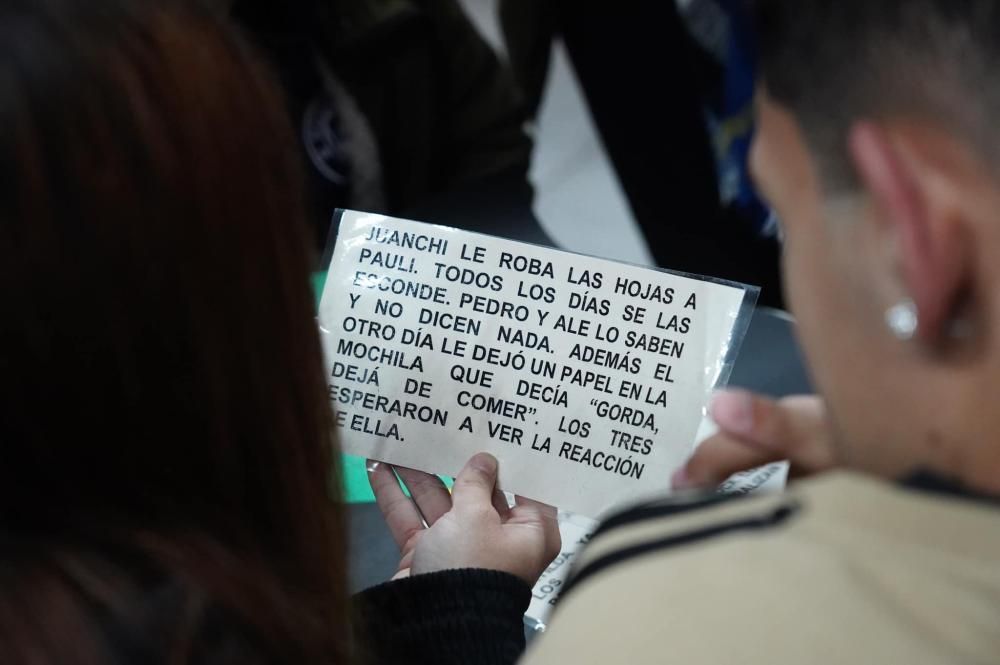 JUANCHI LE ROBA LAS HOJAS A
PAULI. TODOS LOS DÍAS SE LAS
ESCONDE. PEDRO Y ALE LO SABEN
Y NO DICEN NADA. ADEMÁS EL
OTRO DÍA LE DEJÓ UN PAPEL EN LA
MOCHILA QUE DECÍA “GORDA,
DEJÁ DE COMER”. LOS TRES
ESPERARON A VER LA REACCIÓN
DE ELLA.
LOS